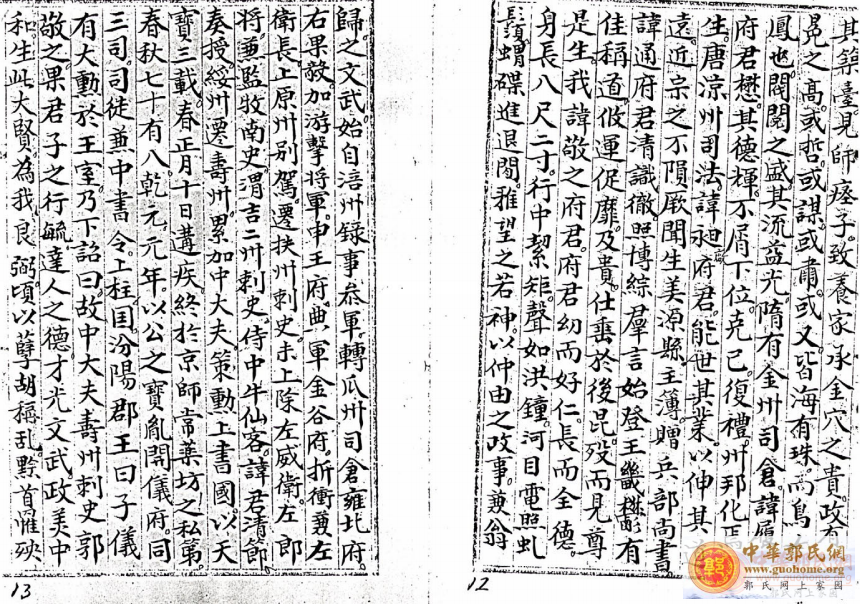 其築臺見師瘞子致養家承金穴之貴政有
晃之髙或哲或謀或肅或乂皆海有珠而鳥
鳳也閥閱之盛其流益光隋有金卅司倉諱履
府君懋其德輝不屑下位克己復禮州邦化
生唐凉州司法諱昶府君能世其業以伸其
遠近宗之不隕厥聞生美源縣主簿贈兵部尚書
諱通府君清識徹照博綜羣言始登王畿有
佳稱道促運促靡及貴仕垂於後昆歿而見尊
是生我諱敬之府君府君幼而好仁長而全德
身長八尺二寸行中絜矩聲如洪鐘河目電照虬
鬚蝟磔進退閑雅望之若神以仲由之政事兼翁
12
歸之文武始自涪州錄事叅軍轉瓜州司倉雍北府
右果毅加游擊將軍申王府典軍金谷府折衝兼左
衛長上原州別駕遷扶州刺史未上除左威衛左郎
將兼監牧南史渭吉二州刺史侍中牛仙客諱君清節
奏授綏州遷壽州累加中大夫策勳上書國以天
寶三載春正月十日遘疾終於京師常樂坊之私第
春秋七十有八乾元元年以公之寶胤開儀府同
三司司徒兼中書令上柱国汾陽郡王曰子儀
有大勳於王室乃下詔曰故中大夫壽州刺史郭
敬之果君子之行毓達人之德才光文武政美中
和生此大賢為我良弼頃以孽胡稱乱黔首罹殃
13
中華郭氏網
www.guohome.org
郭氏网上家园